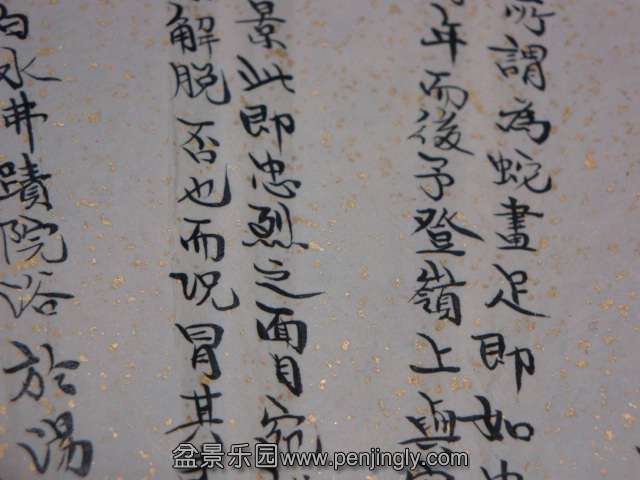 所謂為蛇畫足即如
年而後予登嶺上與
景此即忠烈之面目宛
解脫否也而況冒其
白水弗蹟院浴於湯
盆景乐园www.penjingly.com